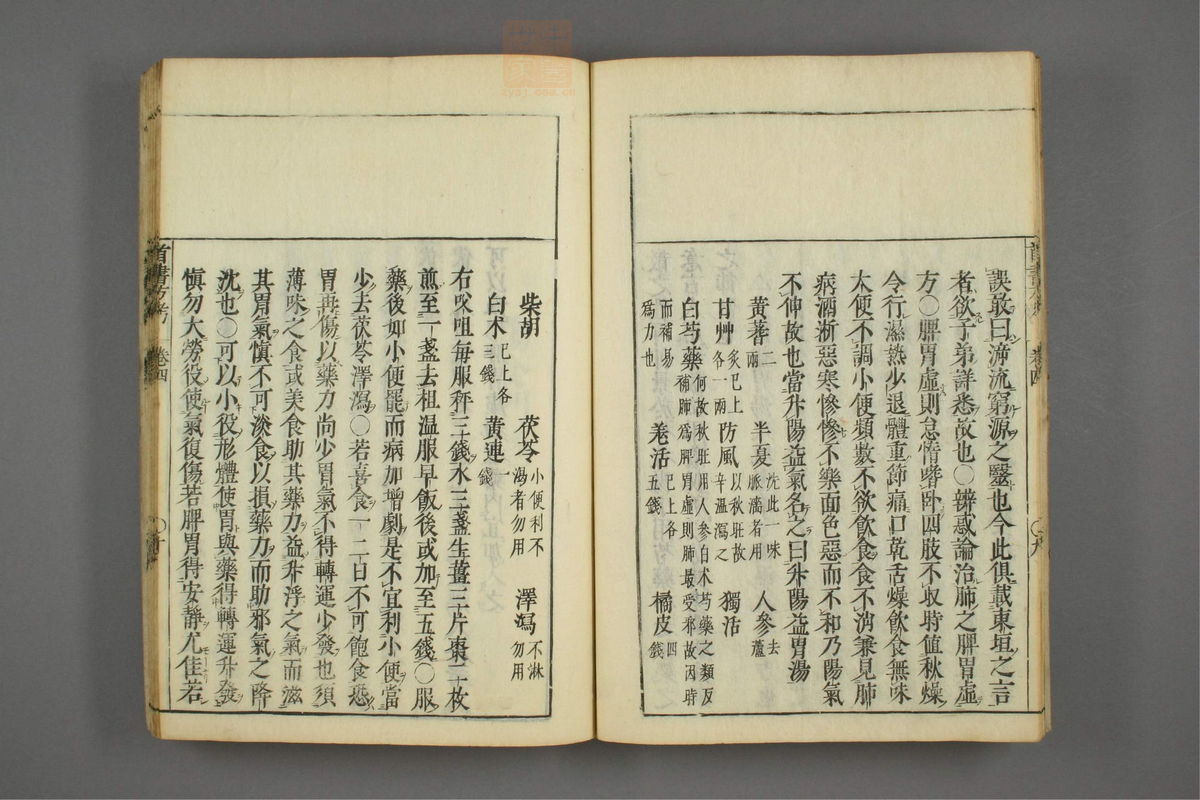 誤敢曰漳流窮源之毉也今此俱載東垣之言
者欲子弟詳悉故也〇辨惑論治肺之脾胃虛
方〇脾胃虛則怠惰嗜卧四肢不収時値秋燥
令行濕熱少退體重節痛口乾舌燥飲食無味
大便不調小便頻數不欲飲食食不消兼見肺
病洒淅惡寒慘慘不樂面色惡而不和乃陽氣
不伸故也當升陽益氣名之曰升陽益胃湯
黃蓍 二兩 半夏 洗此一味脈濇者用 人參 去蘆
甘艸 炙已上各一兩 防風 以秋旺故辛温瀉之 獨活
白芍藥 何故秋旺用人參白术芍藥之類反補肺爲脾胃虛則肺最受邪故因時
而補易爲力也 羌活 已上各五錢 橘皮 四錢
柴胡 茯苓 小便利不渴者勿用 澤瀉 不淋勿用
白术 已上各三錢 黃連 一錢
右㕮咀毎服秤三錢水三盞生薑三片棗二枚
煎至一盞去柤温服早飯後或加至五錢〇服
藥後如小便罷而病加增劇是不宜利小便當
少去茯苓澤瀉〇若喜食一二日不可飽食恐
胃再傷以藥力尚少胃氣不得轉運少發也須
薄味之食或美食助其藥力益升浮之氣而滋
其胃氣愼不可淡食以損藥力而助邪氣之降
沈也〇可以小役形體使胃與藥得轉運升發
愼勿大勞役使氣復傷若脾胃得安靜尤佳若
卷四